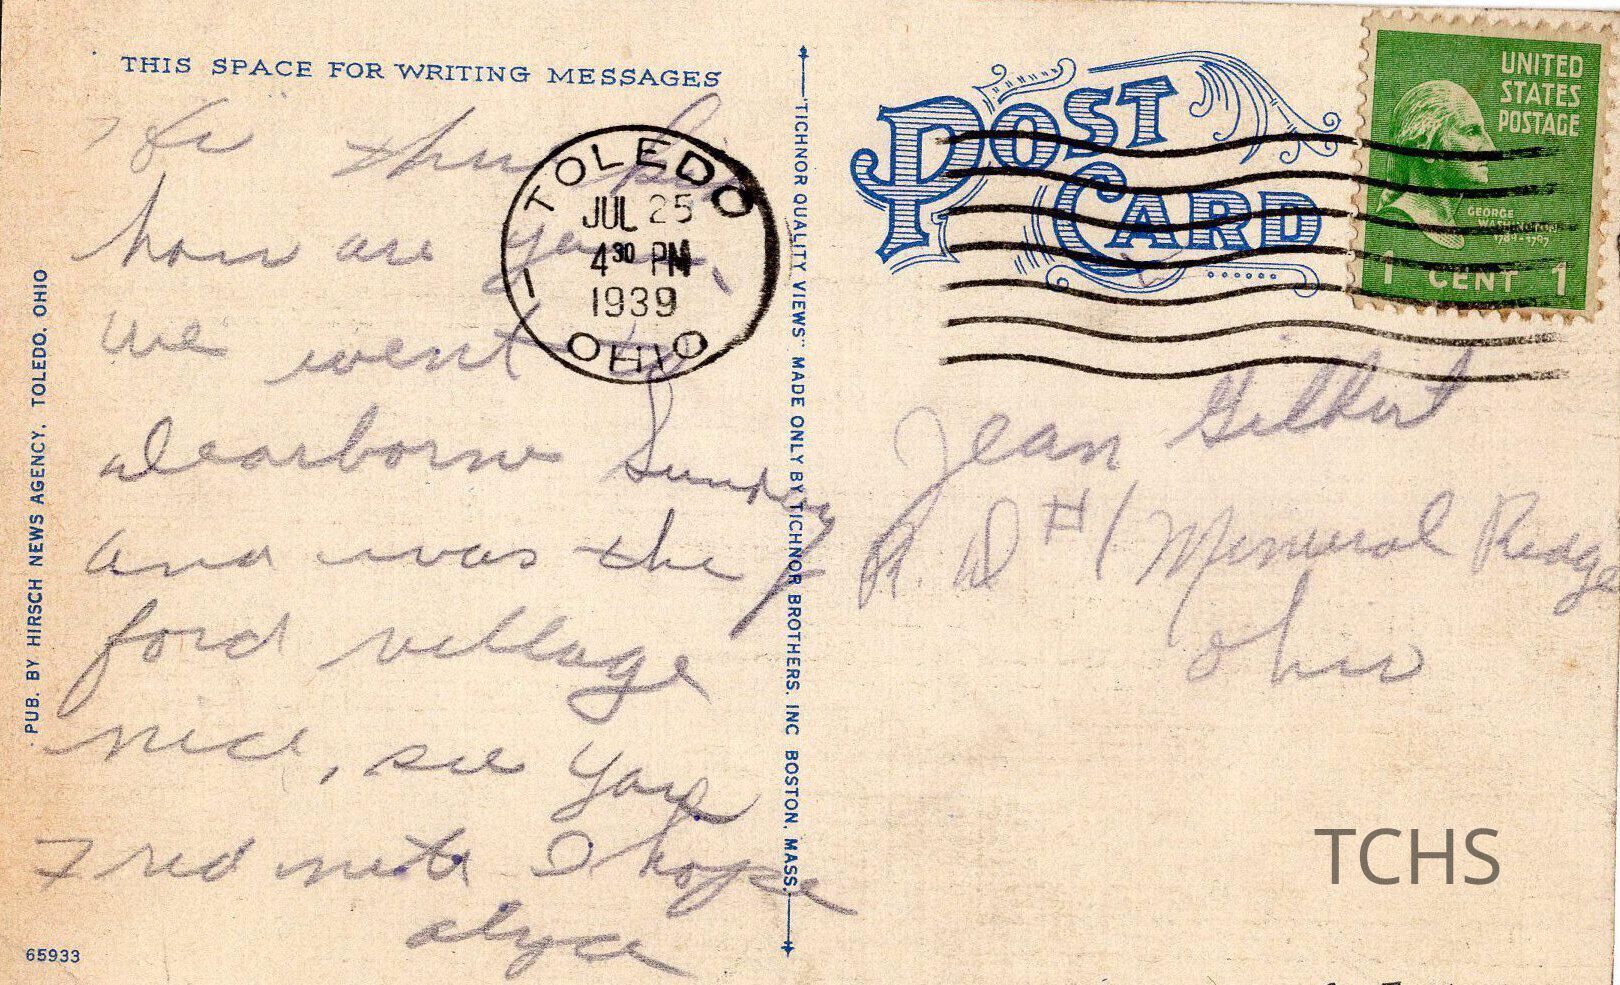 THIS SPACE FOR WRITING MESSAGES
Hi there
how are you.
we went to
dearborne Sunday
and was the
ford village
nice, see you
Fred nite I hope
alyce
PUB. BY HIRSCH NEWS AGENCY, TOLEDO, OHIO
65933
TOLEDO
JUL 25
4 30 PM
1939
OHIO
"TICHNOR QUALITY VIEWS" MADE ONLY BY TICHNOR BROTHERS, INC BOSTON, MASS.
POST
CARD
UNITED
STATES
POSTAGE
GEORGE
WASHINGTON
1789-1797
1 CENT 1
Jean Gilbert
R. D #1 Mineral Ridge
Ohio
TCHS